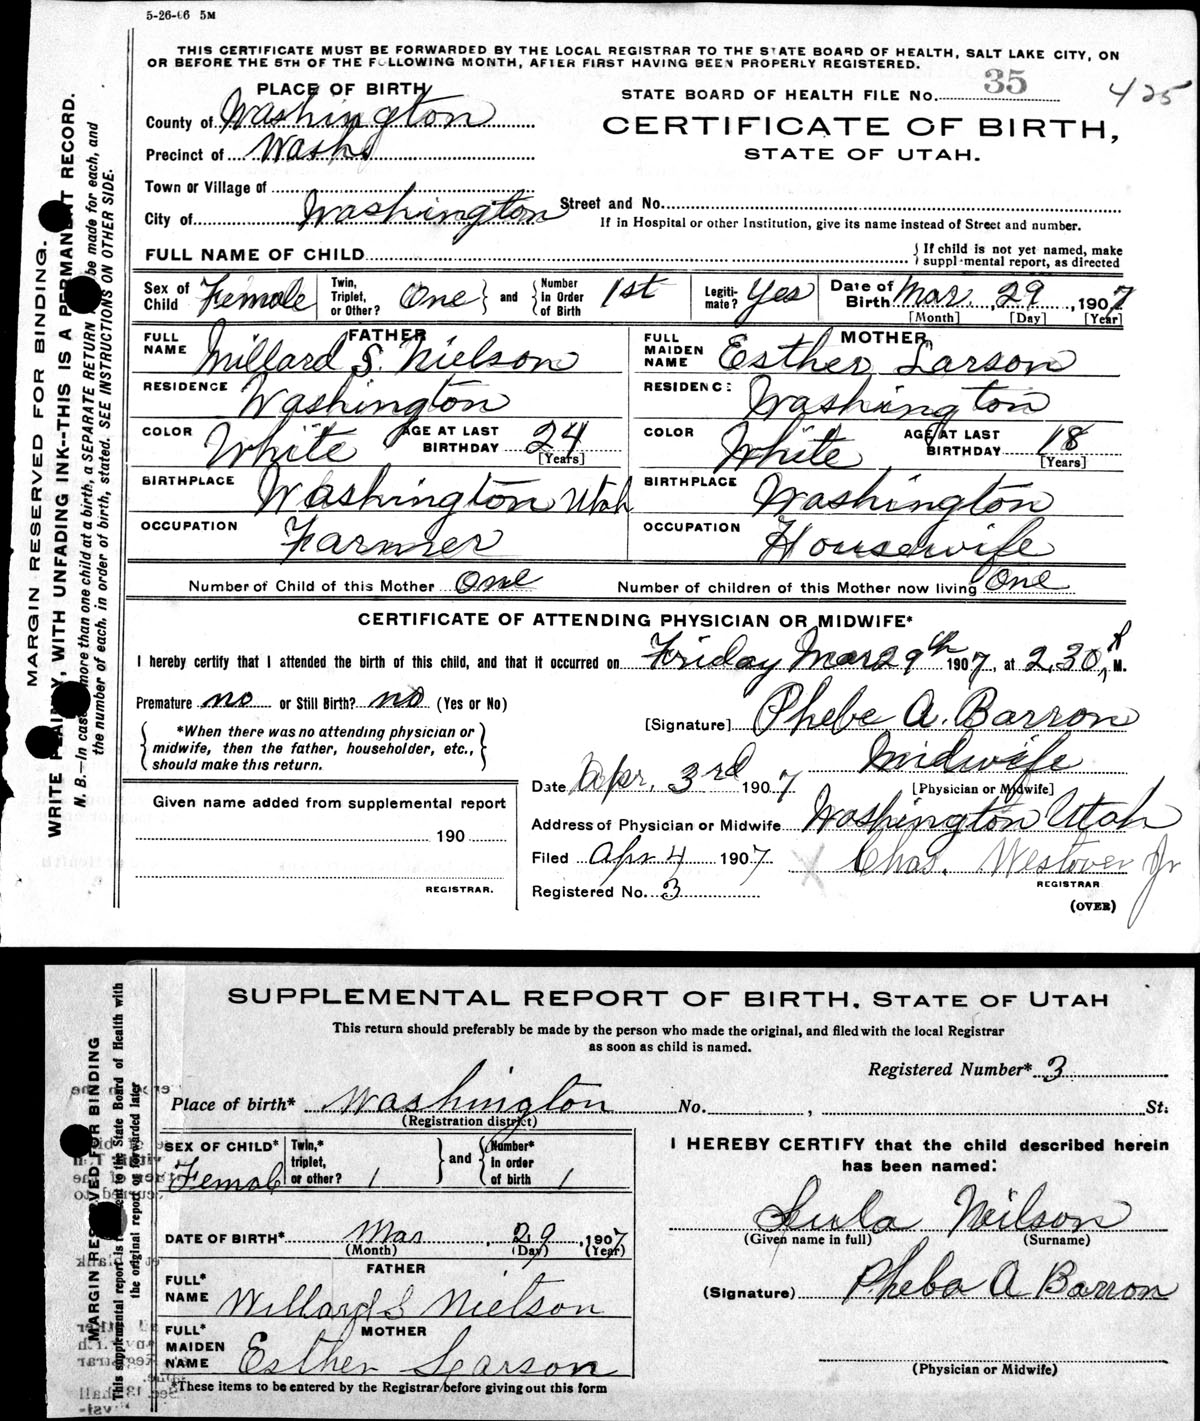 5-26-06 5M
THIS CERTIFICATE MUST BE FORWARDED BY THE LOCAL REGISTRAR TO THE STATE BOARD OF HEALTH, SALT LAKE CITY, ON
OR BEFORE THE 5TH OF THE FOLLOWING MONTH, AFTER FIRST HAVING BEEN PROPERLY REGISTERED.
PLACE OF BIRTH
STATE BOARD OF HEALTH FILE No. 35 425
County of Washington
CERTIFICATE OF BIRTH,
Precinct of Wash
STATE OF UTAH.
Town or Village of
City of Washington Street and No.
If in Hospital or other Institution, give its name instead of Street and number.
FULL NAME OF CHILD { If child is not yet named, make
supplemental report, as directed
Sex of Child Female Twin, Triplet, or Other? One } and { Number in Order of Birth 1st Legiti-mate? Yes Date of Birth Mar. 29, 1907
[Month] [Day] [Year]
FATHER MOTHER
FULL NAME Millard S. Nielson FULL MAIDEN NAME Esther Larson
RESIDENCE Washington RESIDENCE Washington
COLOR White AGE AT LAST BIRTHDAY 24 [Years] COLOR White AGE AT LAST BIRTHDAY 18 [Years]
BIRTHPLACE Washington Utah BIRTHPLACE Washington
OCCUPATION Farmer OCCUPATION Housewife
Number of Child of this Mother One Number of children of this Mother now living One
CERTIFICATE OF ATTENDING PHYSICIAN OR MIDWIFE*
I hereby certify that I attended the birth of this child, and that it occurred on Friday Mar 29th 1907, at 2,30, M.
Premature no or Still Birth? no (Yes or No)
[Signature] Phebe A. Barron
*When there was no attending physician or
midwife, then the father, householder, etc.,
should make this return.
Midwife
[Physician or Midwife]
Date Apr. 3rd 1907
Given name added from supplemental report
190
REGISTRAR.
Address of Physician or Midwife Washington Utah
Filed Apr 4 1907 Chas. Westover Jr
REGISTRAR
Registered No. 3
(OVER)
MARGIN RESERVED FOR BINDING.
WRITE PLAINLY, WITH UNFADING INK--THIS IS A PERMANENT RECORD.
N. B.—In case more than one child at a birth, a SEPARATE RETURN be made for each, and
the number of each, in order of birth, stated. SEE INSTRUCTIONS ON OTHER SIDE.
SUPPLEMENTAL REPORT OF BIRTH, STATE OF UTAH
This return should preferably be made by the person who made the original, and filed with the local Registrar
as soon as child is named.
Registered Number* 3
Place of birth* Washington No. , St.
(Registration district)
SEX OF CHILD* Female Twin,* triplet, or other? 1 } and { Number* in order of birth 1
I HEREBY CERTIFY that the child described herein
has been named:
Lula Neilson
(Given name in full) (Surname)
DATE OF BIRTH* Mar 29, 1907
(Month) (Day) (Year)
FATHER
FULL* NAME Willard S Nielson
(Signature) Pheba A Barron
MOTHER
FULL* MAIDEN NAME Esther Larson
(Physician or Midwife)
*These items to be entered by the Registrar before giving out this form
MARGIN RESERVED FOR BINDING
This supplemental report is to the State Board of Health with
the original report or forwarded later